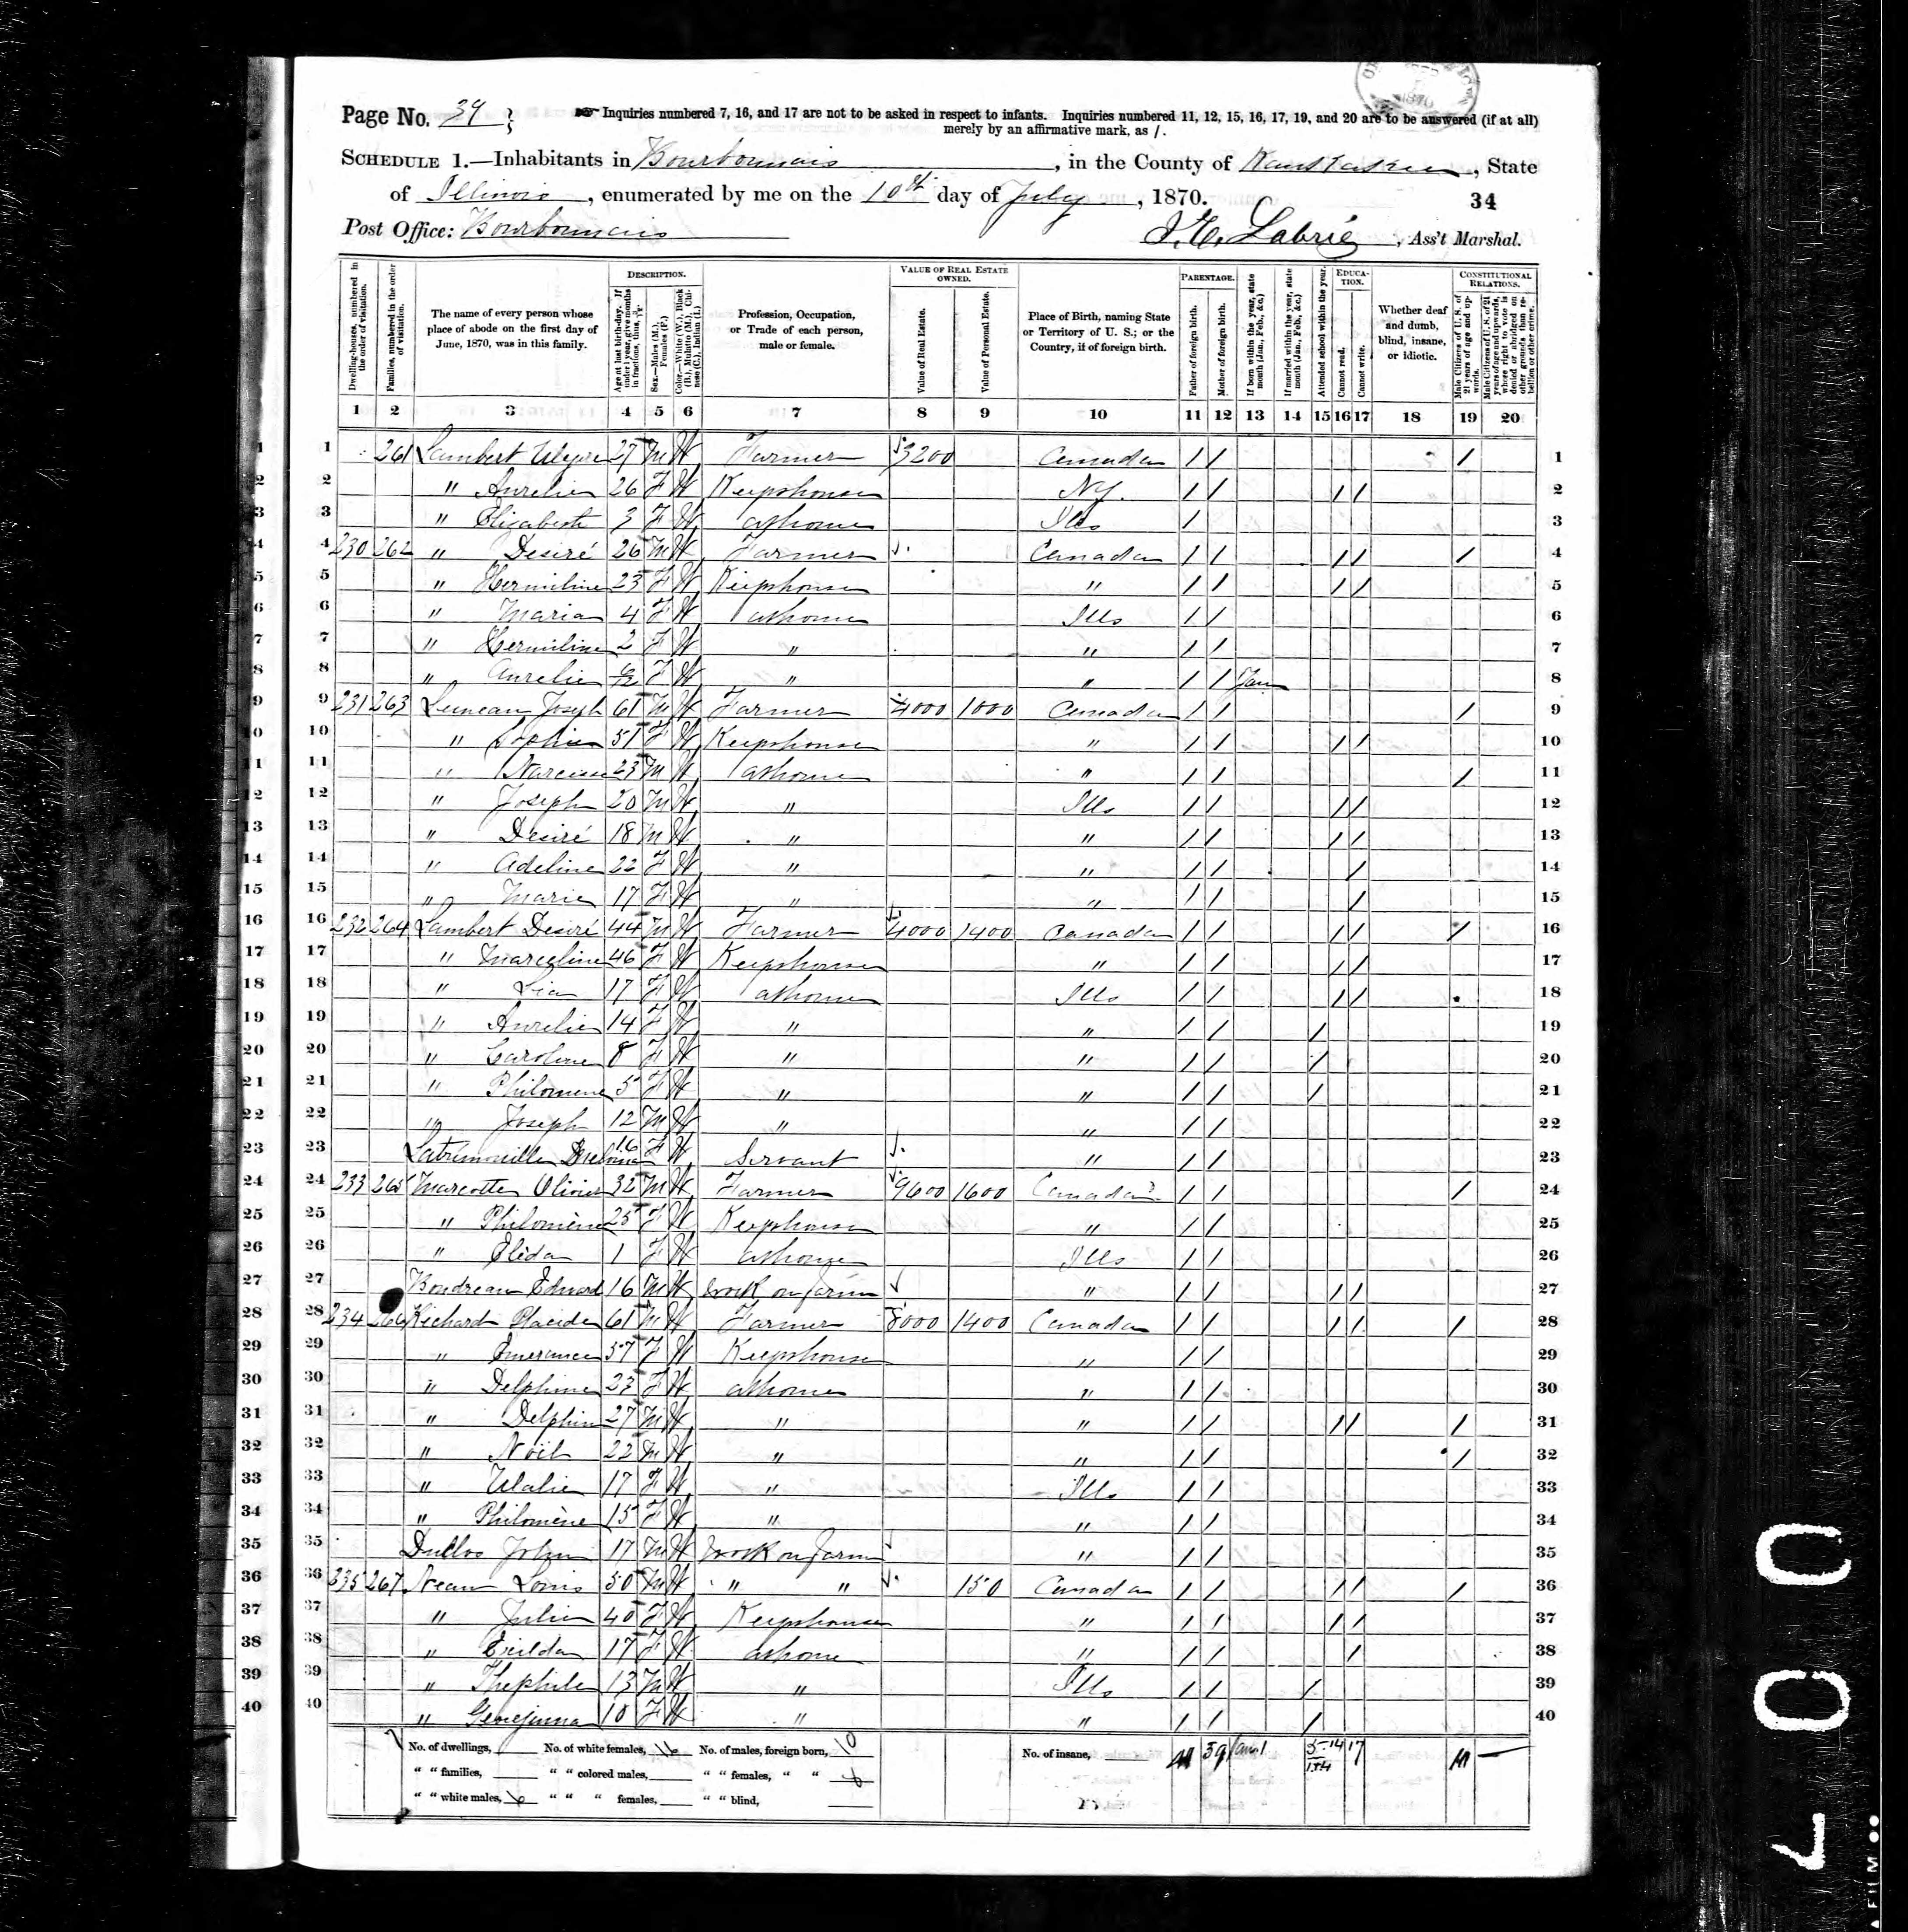 Page No. 39
Inquiries numbered 7, 16, and 17 are not to be asked in respect to infants. Inquiries numbered 11, 12, 15, 16, 17, 19, and 20 are to be answered (if at all)
merely by an affirmative mark, as /.
SCHEDULE 1.—Inhabitants in Bourbonnais, in the County of Kankakee, State
of Illinois, enumerated by me on the 10th day of July, 1870.
34
Post Office: Bourbonnais
Labrie, Ass't Marshal.
Dwelling-houses, numbered in the order of visitation.
Families, numbered in the order of visitation.
The name of every person whose place of abode on the first day of June, 1870, was in this family.
DESCRIPTION.
Age at last birth-day. If under 1 year, give months in fractions, thus, 3/12.
Sex.—Males (M.), Females (F.)
Color.—White (W.), Black (B.), Mulatto (M.), Chinese (C.), Indian (I.)
Profession, Occupation, or Trade of each person, male or female.
VALUE OF REAL ESTATE OWNED.
Value of Real Estate.
Value of Personal Estate.
Place of Birth, naming State or Territory of U. S.; or the Country, if of foreign birth.
PARENTAGE.
Father of foreign birth.
Mother of foreign birth.
If born within the year, state month (Jan., Feb., &c.)
If married within the year, state month (Jan., Feb., &c.)
Attended school within the year.
EDUCATION.
Cannot read.
Cannot write.
Whether deaf and dumb, blind, insane, or idiotic.
CONSTITUTIONAL RELATIONS.
Male Citizens of U. S. of 21 years of age and upwards.
Male Citizens of U. S. of 21 years of age and upwards, whose right to vote is denied or abridged on other grounds than rebellion or other crime.
1 2 3 4 5 6 7 8 9 10 11 12 13 14 15 16 17 18 19 20
1 261 Lambert 27 M W Farmer 3200 Canada / / / 1
2 " Aurelie 26 F W Keepshouse N.Y. / / / / 2
3 " Elizabeth 3 F W athome Ills / 3
4 230 262 " Desiré 26 M W Farmer Canada / / / / / 4
5 " Hermiline 23 F W Keepshouse " / / / / 5
6 " Maria 4 F W athome Ills / / 6
7 " Hermiline 2 F W " " / / 7
8 " Aurelie 6/12 F W " " / / Jan 8
9 231 263 Luneau Joseph 61 M W Farmer 4000 1000 Canada / / / 9
10 " Sophie 51 F W Keepshouse " / / / / 10
11 " Narcisse 23 M W athome " / / / 11
12 " Joseph 20 M W " Ills / / / / 12
13 " Desiré 18 M W " " / / / / 13
14 " Adeline 22 F W " " / / / 14
15 " Marie 17 F W " " / / / 15
16 232 264 Lambert Desiré 44 M W Farmer 4000 1400 Canada / / / / / 16
17 " Marceline 46 F W Keepshouse " / / / / 17
18 " Lia 17 F W athome Ills / / / / 18
19 " Aurelie 14 F W " " / / / 19
20 " Caroline 8 F W " " / / / 20
21 " Philomene 5 F W " " / / / 21
22 " Joseph 12 M W " " / / 22
23 Latrimouille 16 F W Servant " / / 23
24 233 265 Marcotte Olivier 32 M W Farmer 9600 1600 Canada / / / 24
25 " Philomène 25 F W Keepshouse " / / 25
26 " Elida 1 F W athome Ills / / 26
27 Boudreau Edward 16 M W work on farm " / / / / 27
28 234 266 Richard Placide 61 M W Farmer 8000 1400 Canada / / / / / 28
29 " Emerance 57 F W Keepshouse " / / 29
30 " Delphine 23 F W athome " / / 30
31 " Delphin 27 M W " " / / / / / 31
32 " Noël 22 M W " " / / / 32
33 " Ulalie 17 F W " Ills / / 33
34 " Philomène 15 F W " " / / 34
35 Duclos John 17 M W work on farm " / / 35
36 235 267 Neau Louis 50 M W " " 150 Canada / / / / / 36
37 " Julie 40 F W Keepshouse " / / / / 37
38 " Exilda 17 F W athome " / / / 38
39 " Thephile 13 M W " Ills / / / 39
40 " 10 F W " " / / / 40
No. of dwellings, No. of white females, 16 No. of males, foreign born, 10 No. of insane, 39 14 17
" " families, " " colored males, " " females, " " 6
" " white males, 6 " " " females, " " blind,